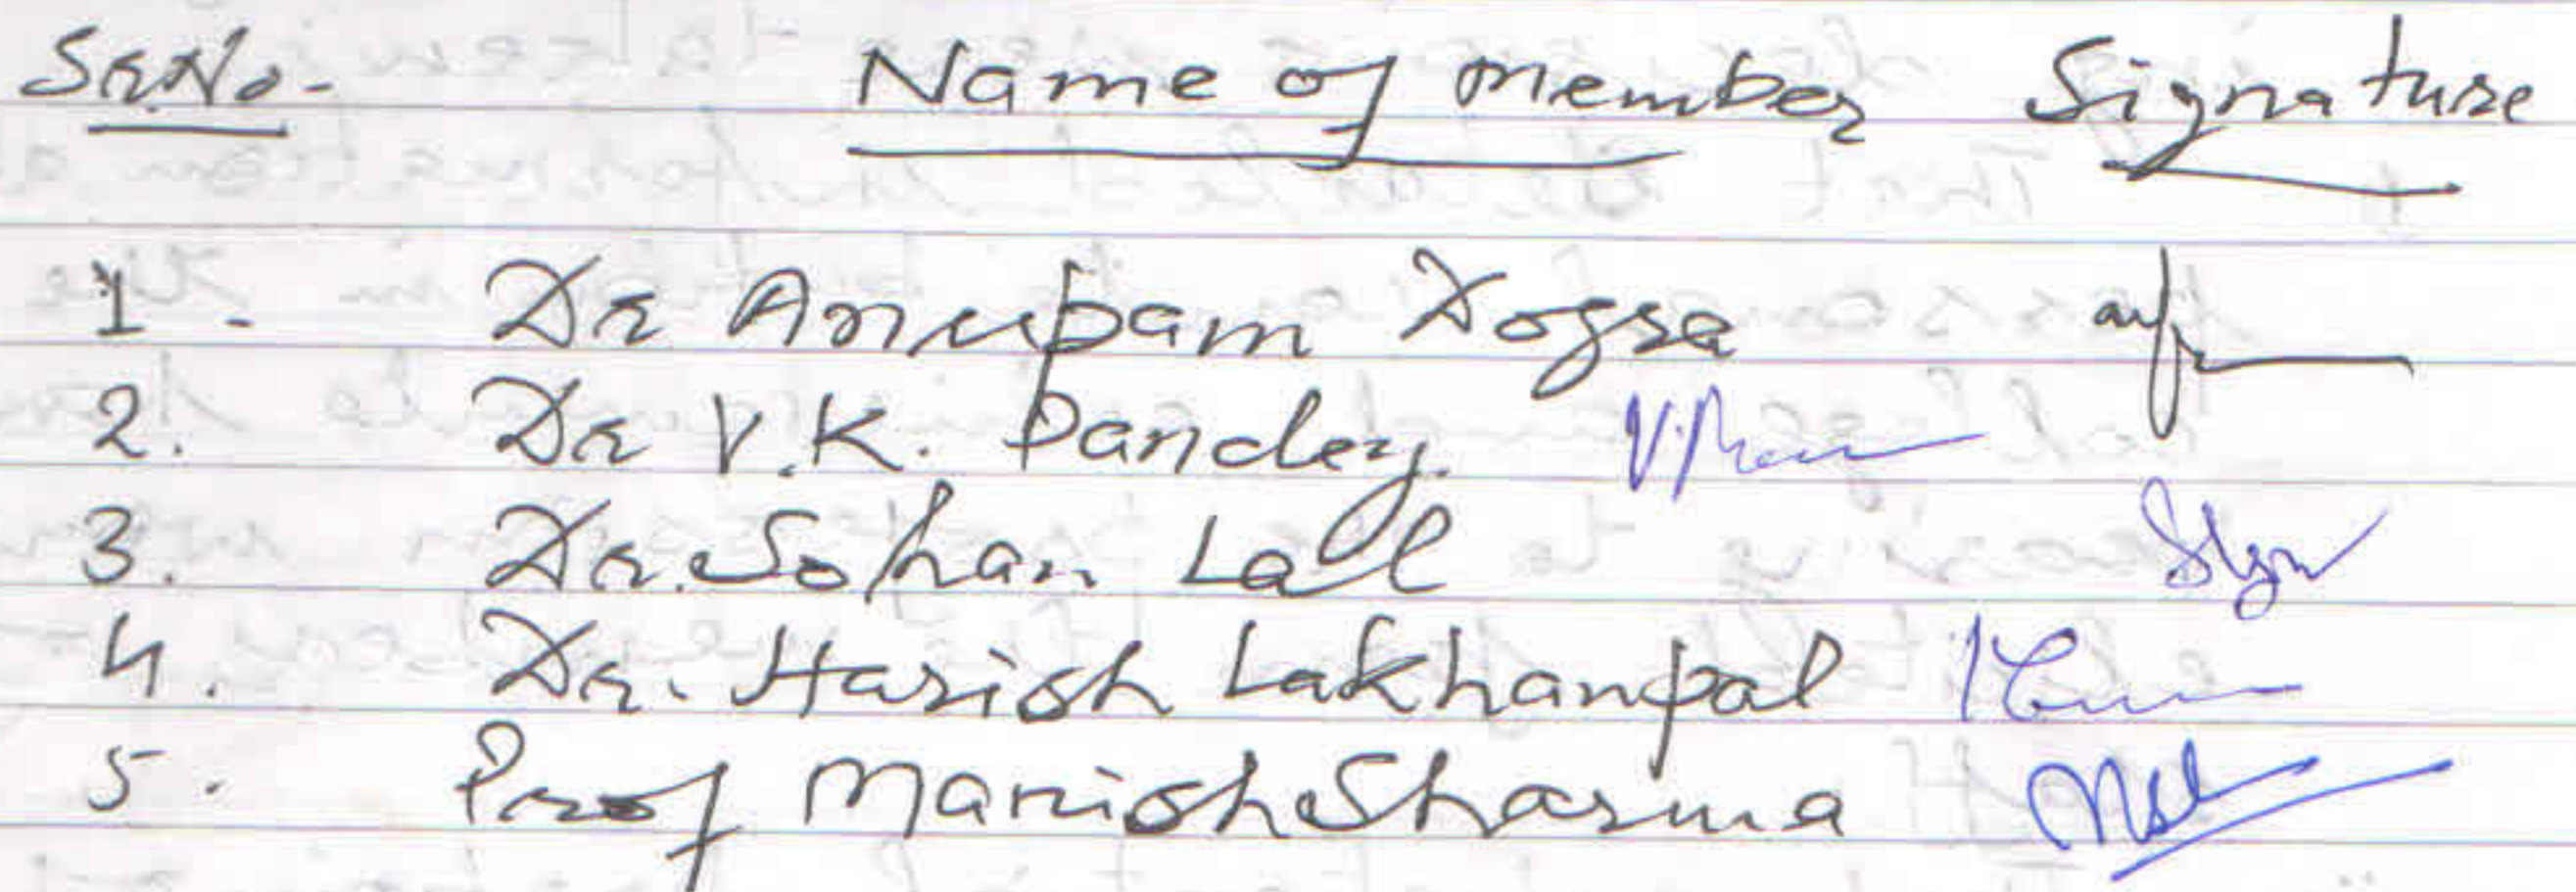 Sr.No- Name of member Signature
1- Dr Anupam Dogra
2. Dr V.K. Pandey.
3. Dr. Sohan Lal
4. Dr. Harish Lakhanpal
5. Prof Manish Sharma